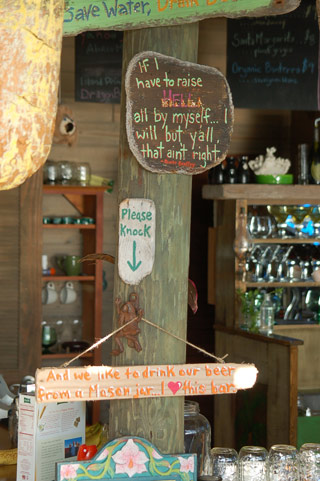 Save Water,
If I
have to raise
HELL
all by myself... I
will but yall,
that aint right
Please
Knock
And we like to drink our beer
from a Mason jar... I ❤ this bar